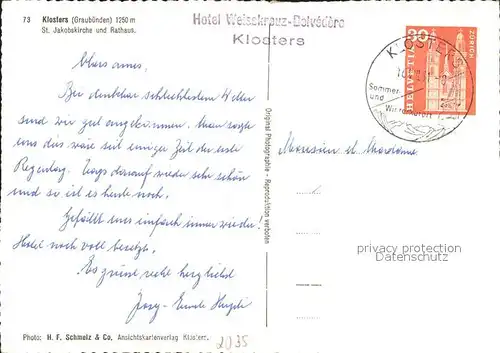 73 Klosters (Graubünden) 1250 m
St. Jakobskirche und Rathaus.
Hotel Weisskreuz-Belvédère
Klosters
HELVETIA
30
ZÜRICH
KLOSTERS
Sommer
und
Wintersport
Chers amis,
Bei denkbar schlechtestem Wetter
sind wir gut angekommen. Man sagte
uns dies wäre seit einiger Zeit der erste
Regentag. Tags darauf wieder sehr schön
und so ist es heute noch.
Gefällt uns einfach immer wieder!
Hotel noch voll besetzt.
Es grüsst recht herzlichst
Monsieur et Madame
Original Photographie - Reproduktion verboten
privacy protection
Datenschutz
Photo: H. F. Schmelz & Co, Ansichtskartenverlag Klosters.
2035